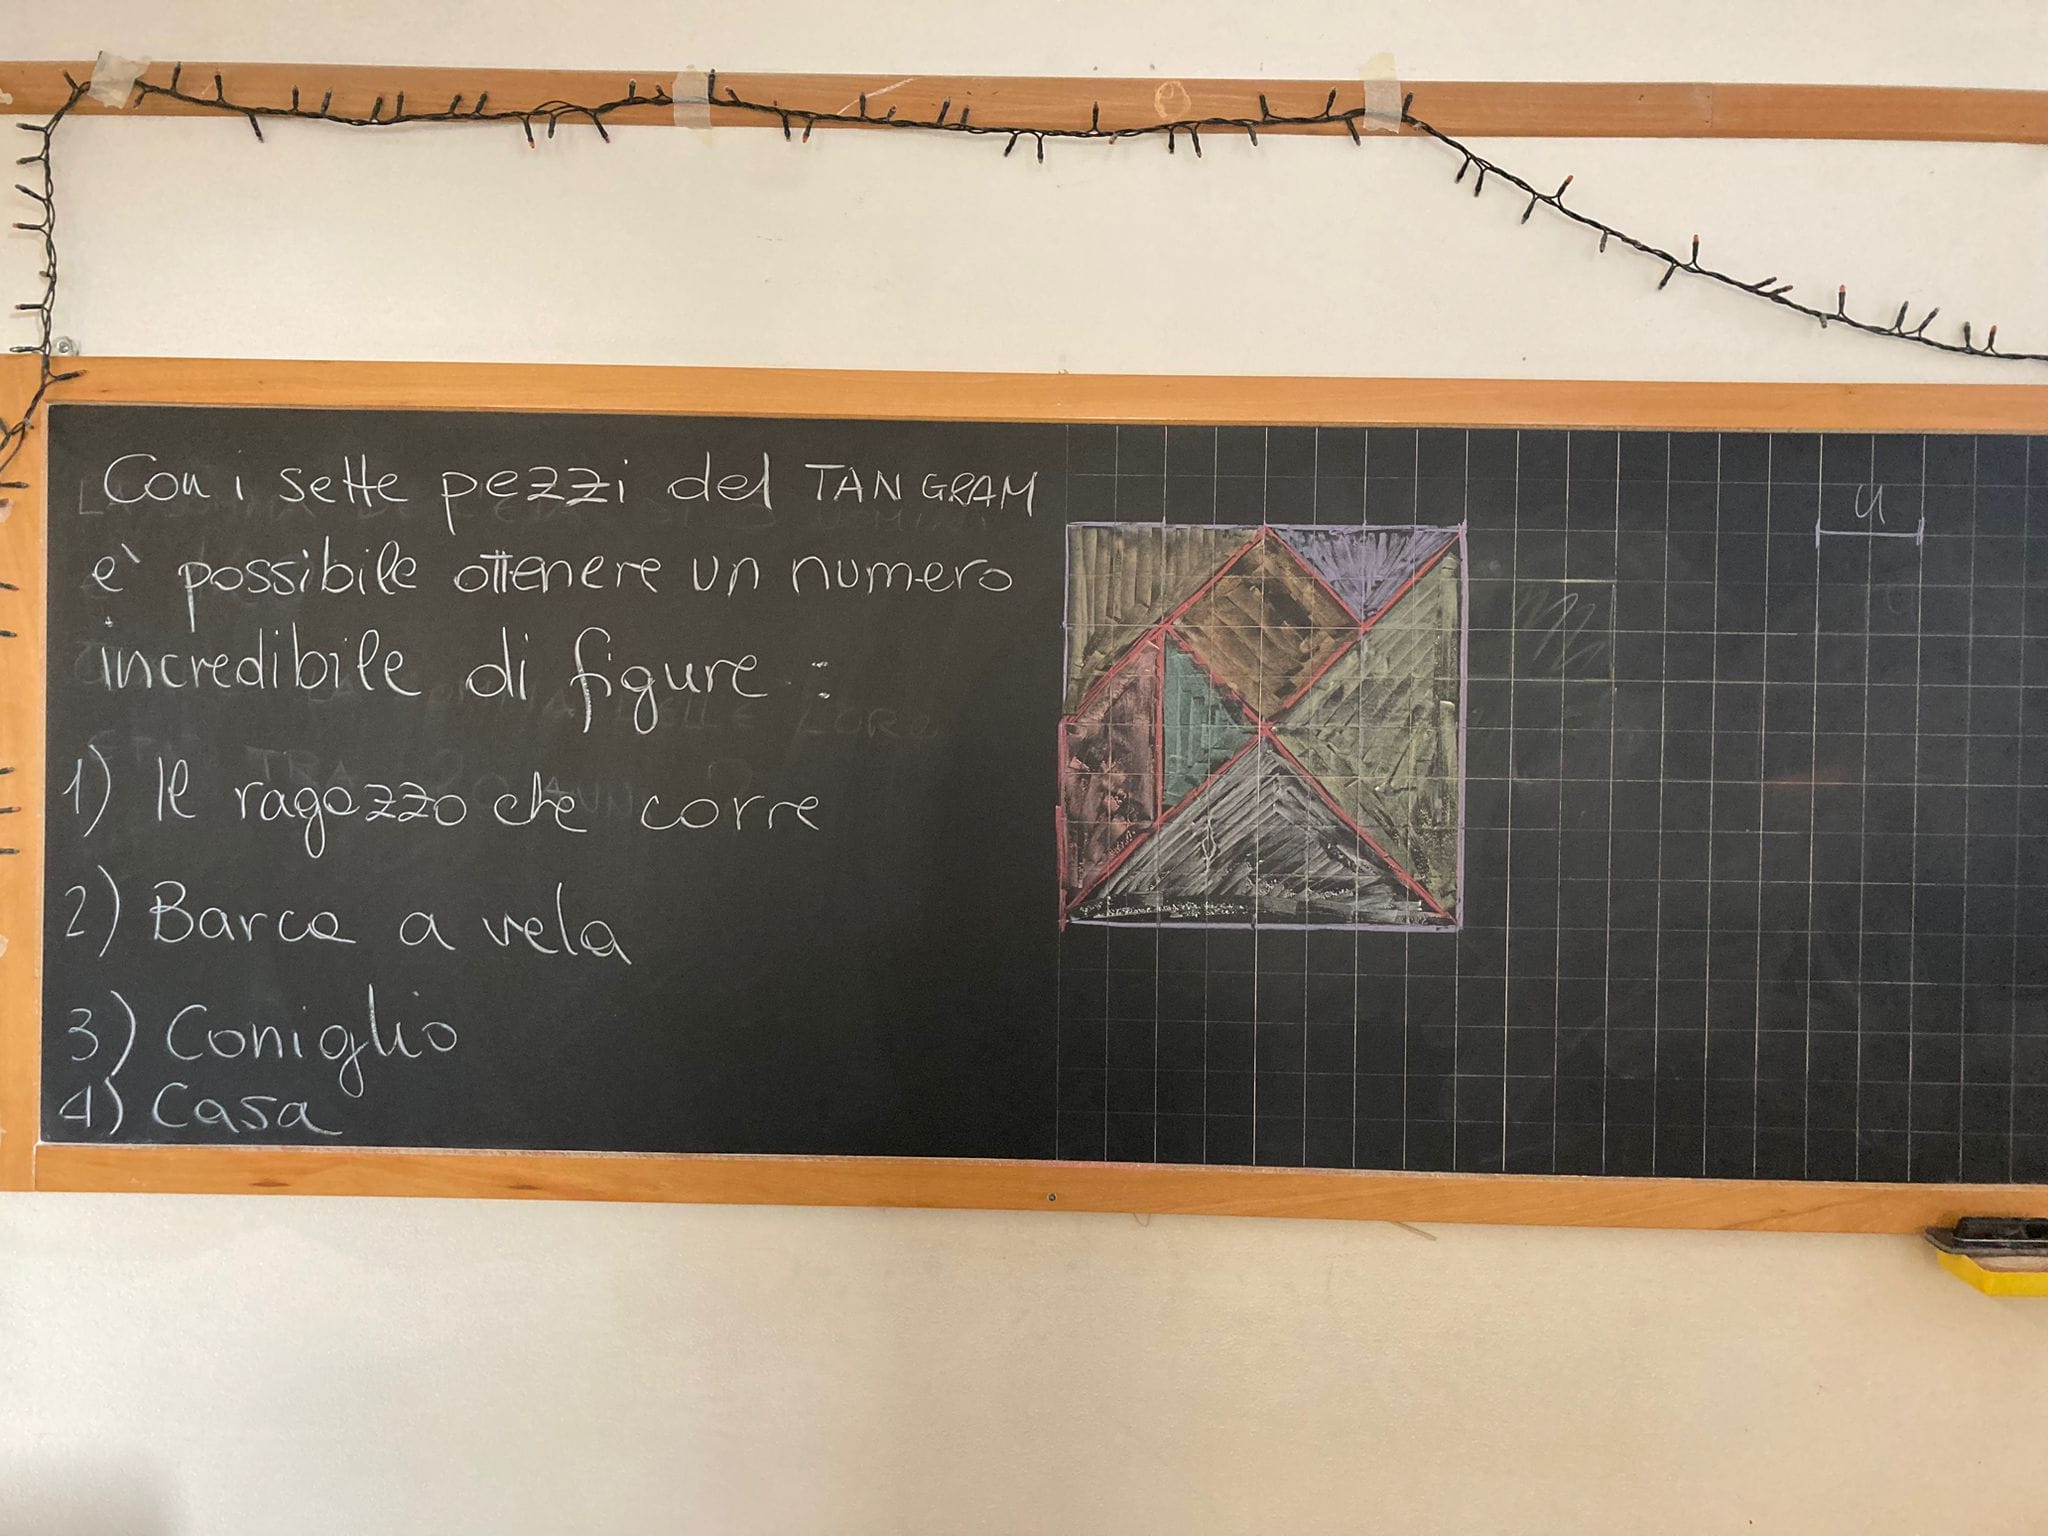 Con i sette pezzi del TANGRAM
è possibile ottenere un numero
incredibile di figure :
1) Il ragazzo che corre
2) Barca a vela
3) Coniglio
4) Casa
u